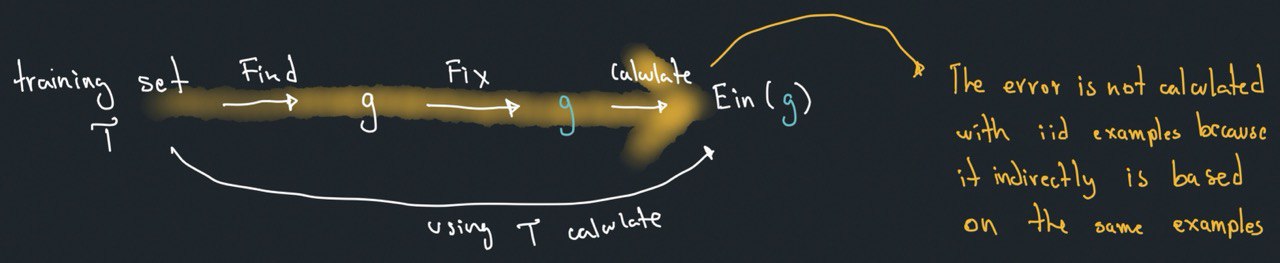 training set
T
Find
g
Fix
g
Calculate
Ein (g)
using T calculate
The error is not calculated
with iid examples because
it indirectly is based
on the same examples